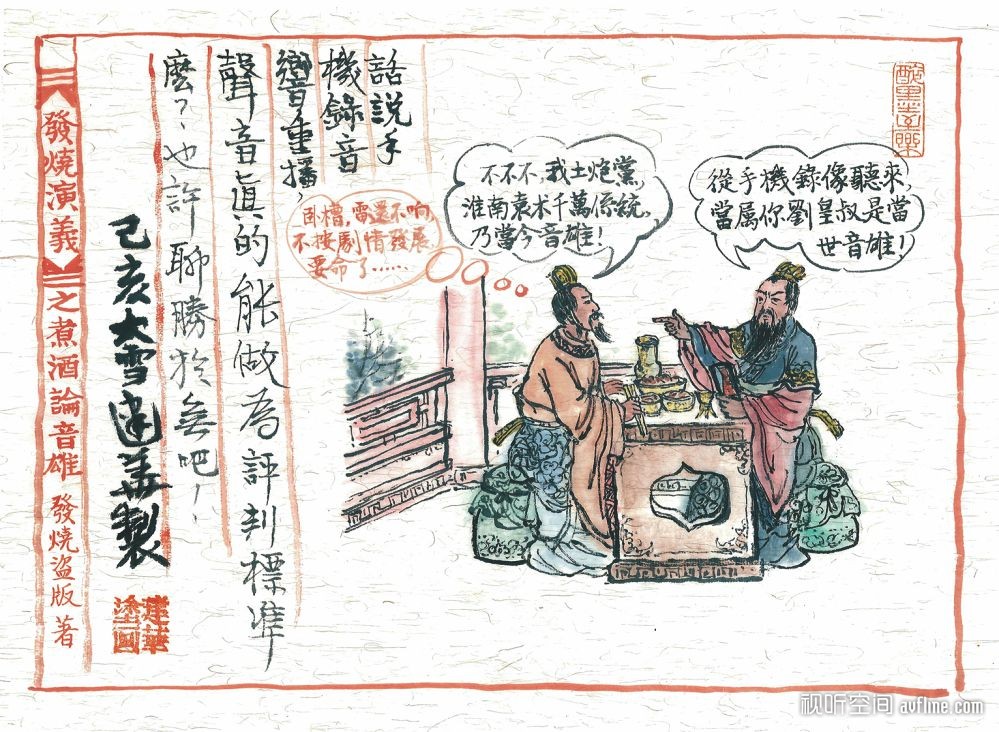 從手機錄像聽來,
當屬你劉皇叔是當
世音雄!
不不不,我土炮黨,
淮南袁术千萬係統,
乃當今音雄!
卧槽,雷還不响,
不按劇情發展
要命了……
話説手
機錄音
響重播,
聲音眞的能做為評判標準
麼?也許聊勝於無吧!
己亥大雪建華製
建華
塗圖
發燒演義之煮酒論音雄 發燒盜版 著
视听空间 avfline.com